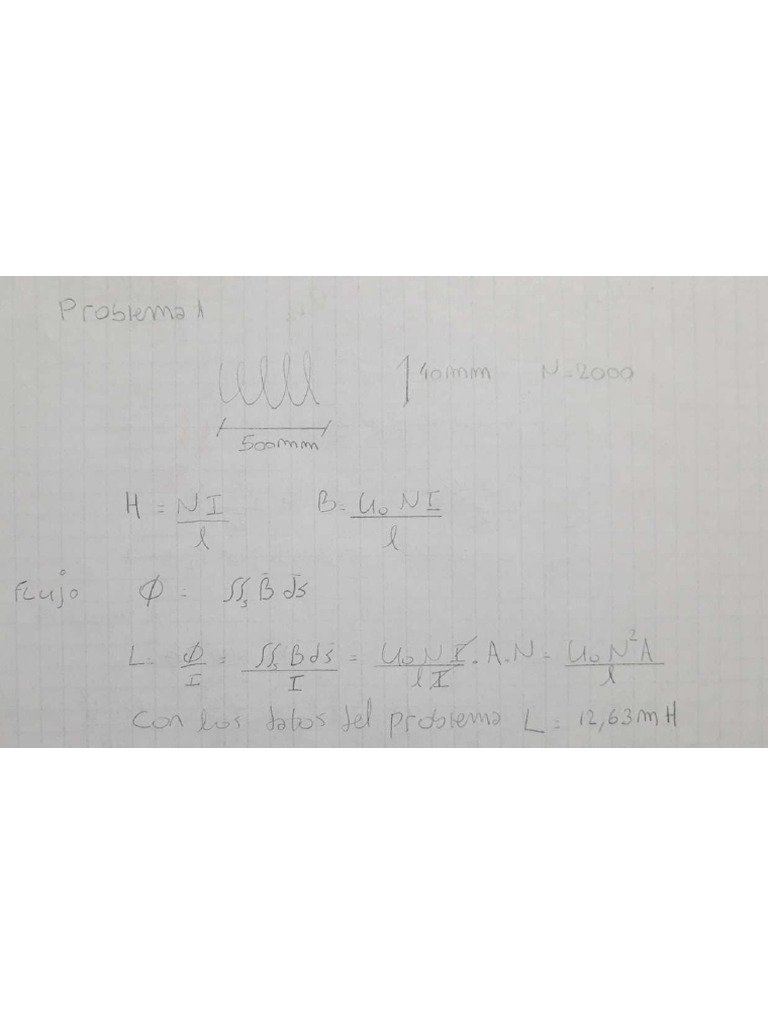 Problema 1
40mm N=2000
500mm
H = NI/l B = U₀NI/l
Flujo ϕ = ∬ₛ B̄ ds̄
L = ϕ/I = ∬ₛ B̄ ds̄/I = U₀NI/lI . A.N = U₀N²A/l
Con los datos del problema L = 12,63mH